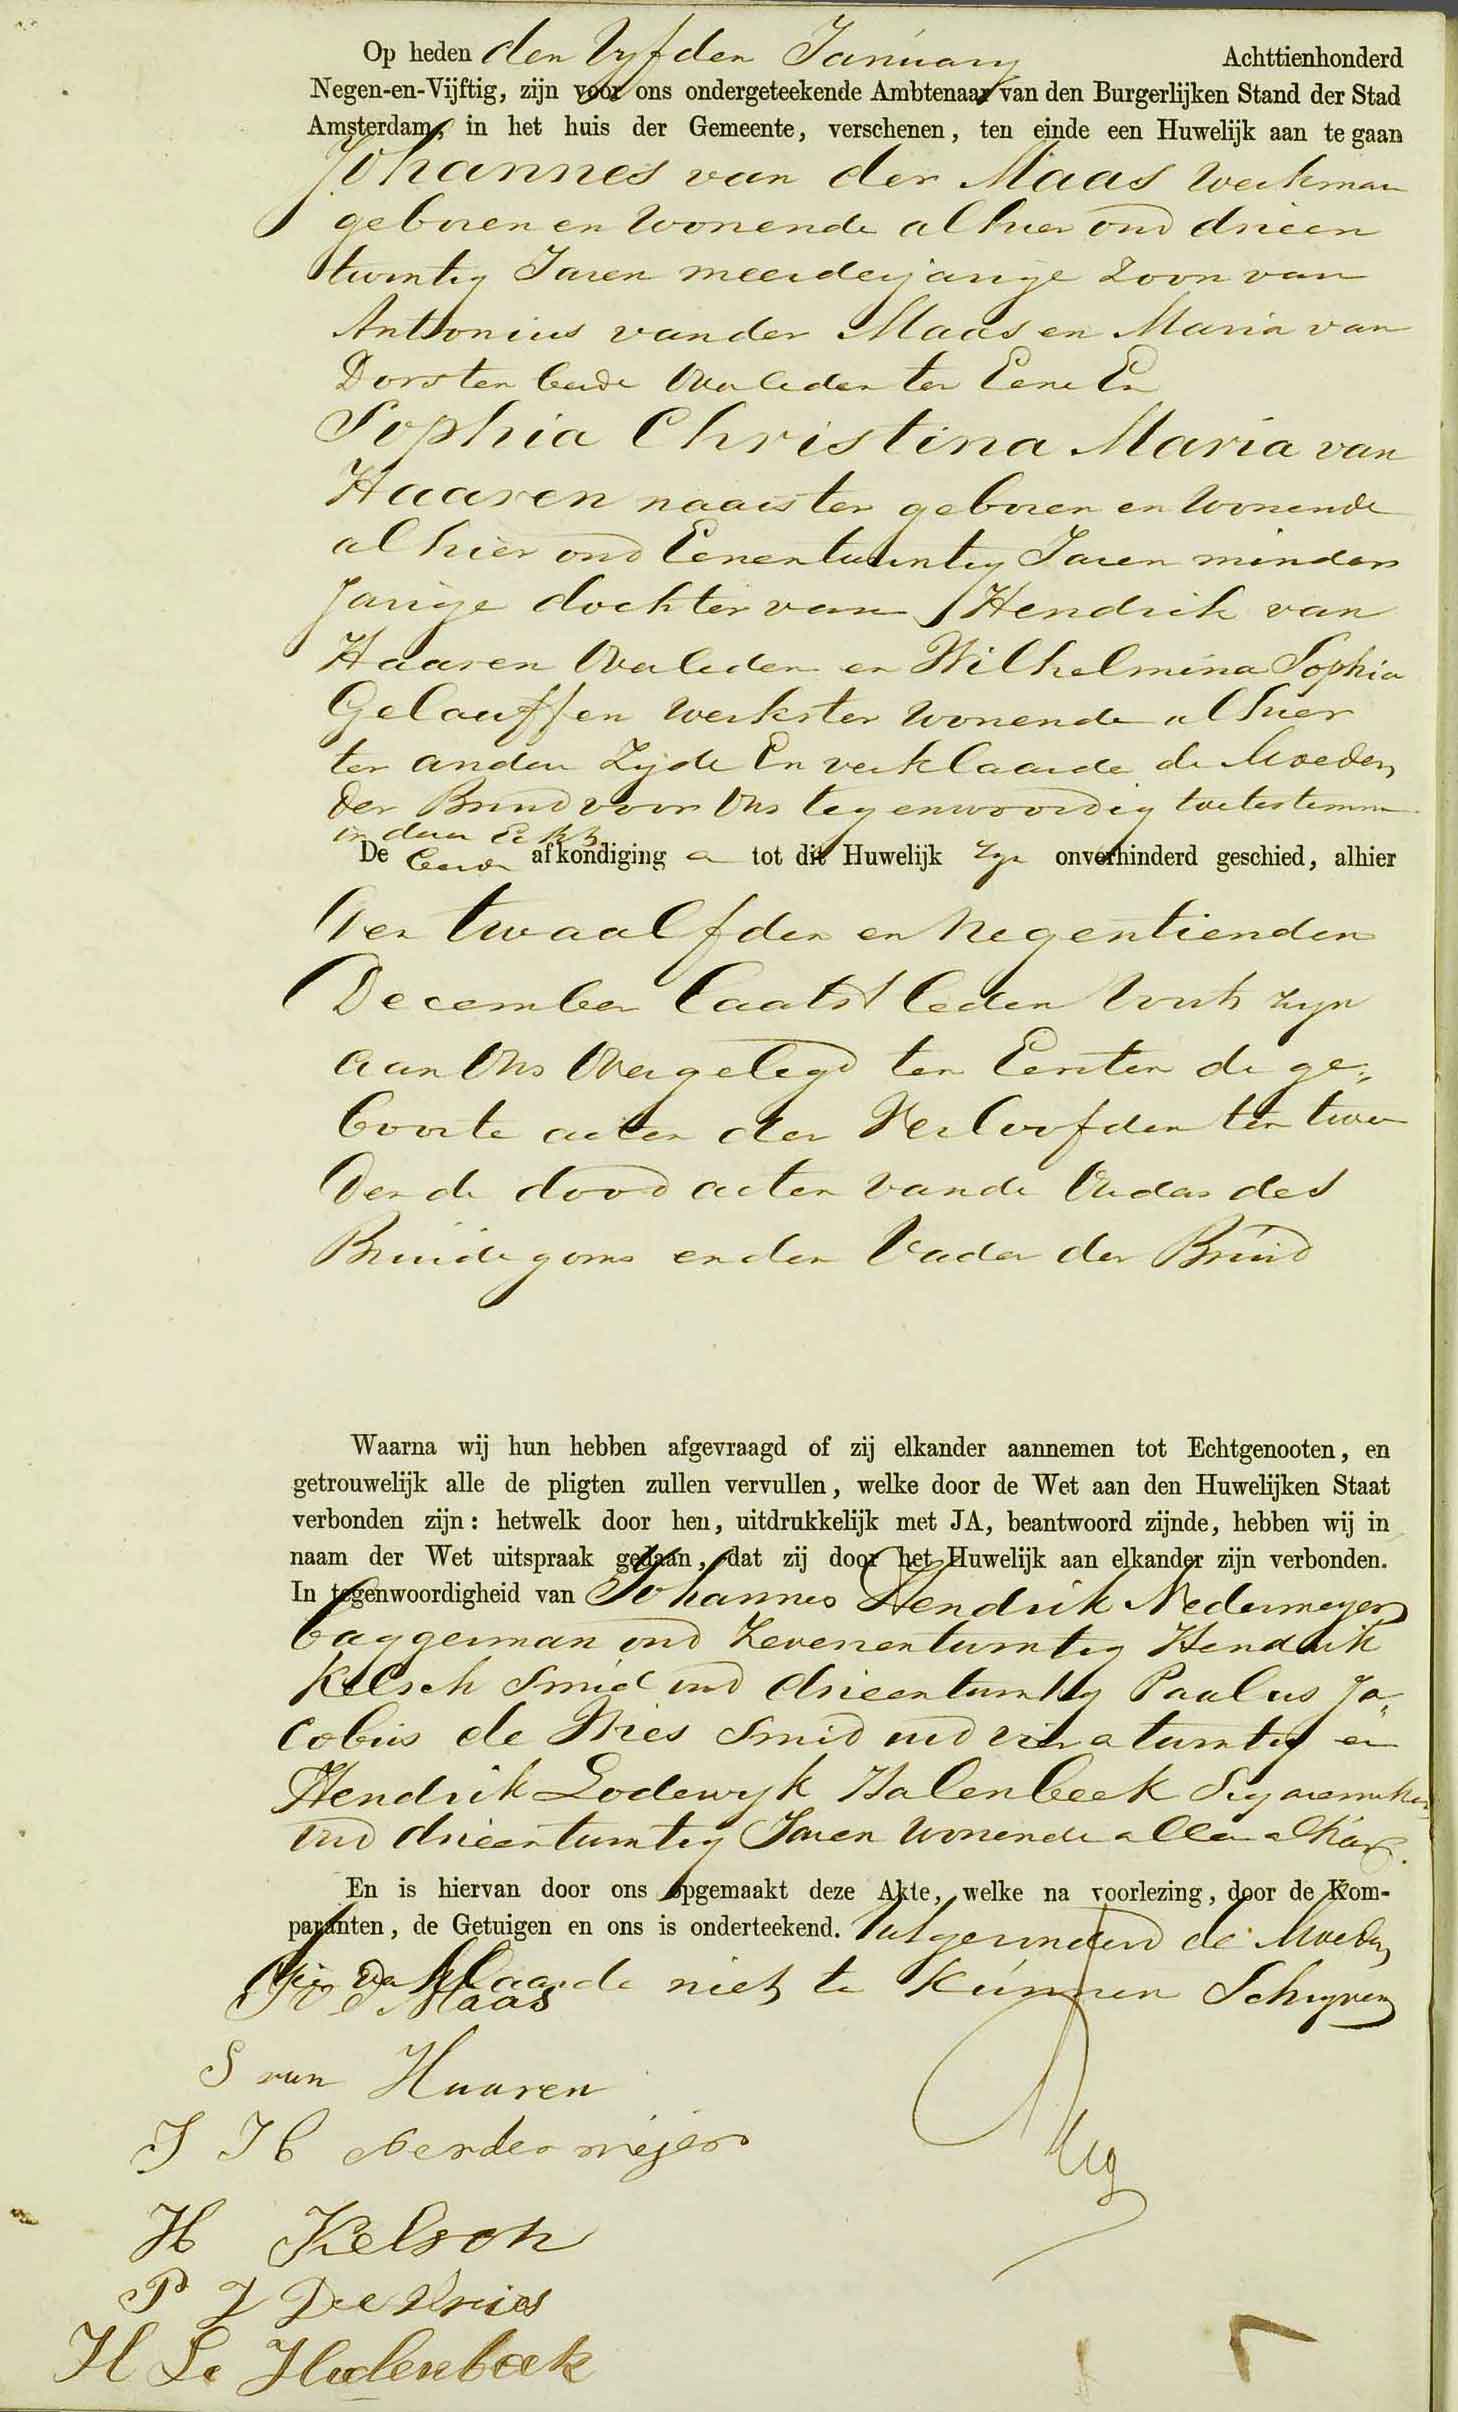 Op heden den Vyfden January Achttienhonderd
Negen-en-Vijftig, zijn voor ons ondergeteekende Ambtenaar van den Burgerlijken Stand der Stad
Amsterdam, in het huis der Gemeente, verschenen, ten einde een Huwelijk aan te gaan
Johannes van der Maas Werkman
geboren en Wonende alhier oud drieen
twintig Jaren meerderjarige Zoon van
Anthonius van der Maas en Maria van
Dorsten beide Overleden ter Eene En
Sophia Christina Maria van
Haaren naaister geboren en Wonende
alhier oud Eenentwintig Jaren minder
jarige dochter van Hendrik van
Haaren Overleden en Wilhelmina Sophia
Gelauffen werkster Wonende alhier
ter andere Zyde En verklaarde de Moeder
der Bruid voor Ons tegenwoordig toetestemmen
in deze Echt
De beide afkondiging en tot dit Huwelijk zyn onverhinderd geschied, alhier
den twaalfden en Negentienden
December laatstleden Voorts zyn
aan Ons Overgelegd ten Eersten de ge„
boorte acten der Verloofden ten twee
den de dood acten van de Ouders des
Bruidegoms en den Vader der Bruid
Waarna wij hun hebben afgevraagd of zij elkander aannemen tot Echtgenooten, en
getrouwelijk alle de pligten zullen vervullen, welke door de Wet aan den Huwelijken Staat
verbonden zijn: hetwelk door hen, uitdrukkelijk met JA, beantwoord zijnde, hebben wij in
naam der Wet uitspraak gedaan, dat zij door het Huwelijk aan elkander zijn verbonden.
In tegenwoordigheid van Johannes Hendrik Nedermeyer
baggerman oud Zevenentwintig Hendrik
Kelsch Smid oud drieentwintig Paulus Ja„
cobus de Vries Smid oud vierentwintig en
Hendrik Lodewyk Halenbeek Sigarenmaker
oud drieentwintig Jaren Wonende allen alhier.
En is hiervan door ons opgemaakt deze Akte, welke na voorlezing, door de Kom-
paranten, de Getuigen en ons is onderteekend. Uitgezonderd de Moeder
die Verklaarde niet te kunnen Schryven
J v d Maas
S van Haaren
J H Nerdermejer
H Kelsch
P J De Vries
H L Halenbeek